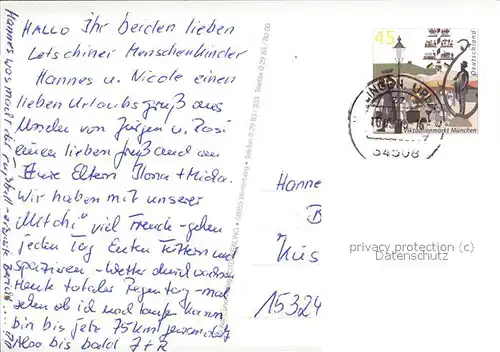 HALLO Ihr beiden lieben
Letschiner Menschenkinder
Hannes u. Nicole einen
lieben Urlaubsgruß aus
von Jürgen u. Rosi
einen lieben Gruß auch an
Eure Eltern Ilona + Micha.
Wir haben mit unserer
"Mitchi" viel Freude - gehen
jeden Tag Enten füttern und
spazieren - Wetter durchwachsen
Heute totaler Regentag - mal
sehen ob ich noch laufen kann
bin bis jetzt 75 km gewandert
Also bis bald J + R
Hannes was mail
45
Deutschland
Viktualienmarkt München
34508
Hanne
B
Küs
15324
privacy protection (c)
Datenschutz